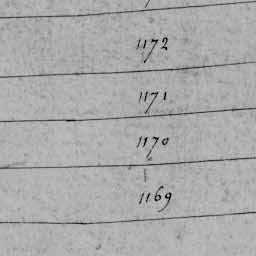 1172
1171
1170
1169